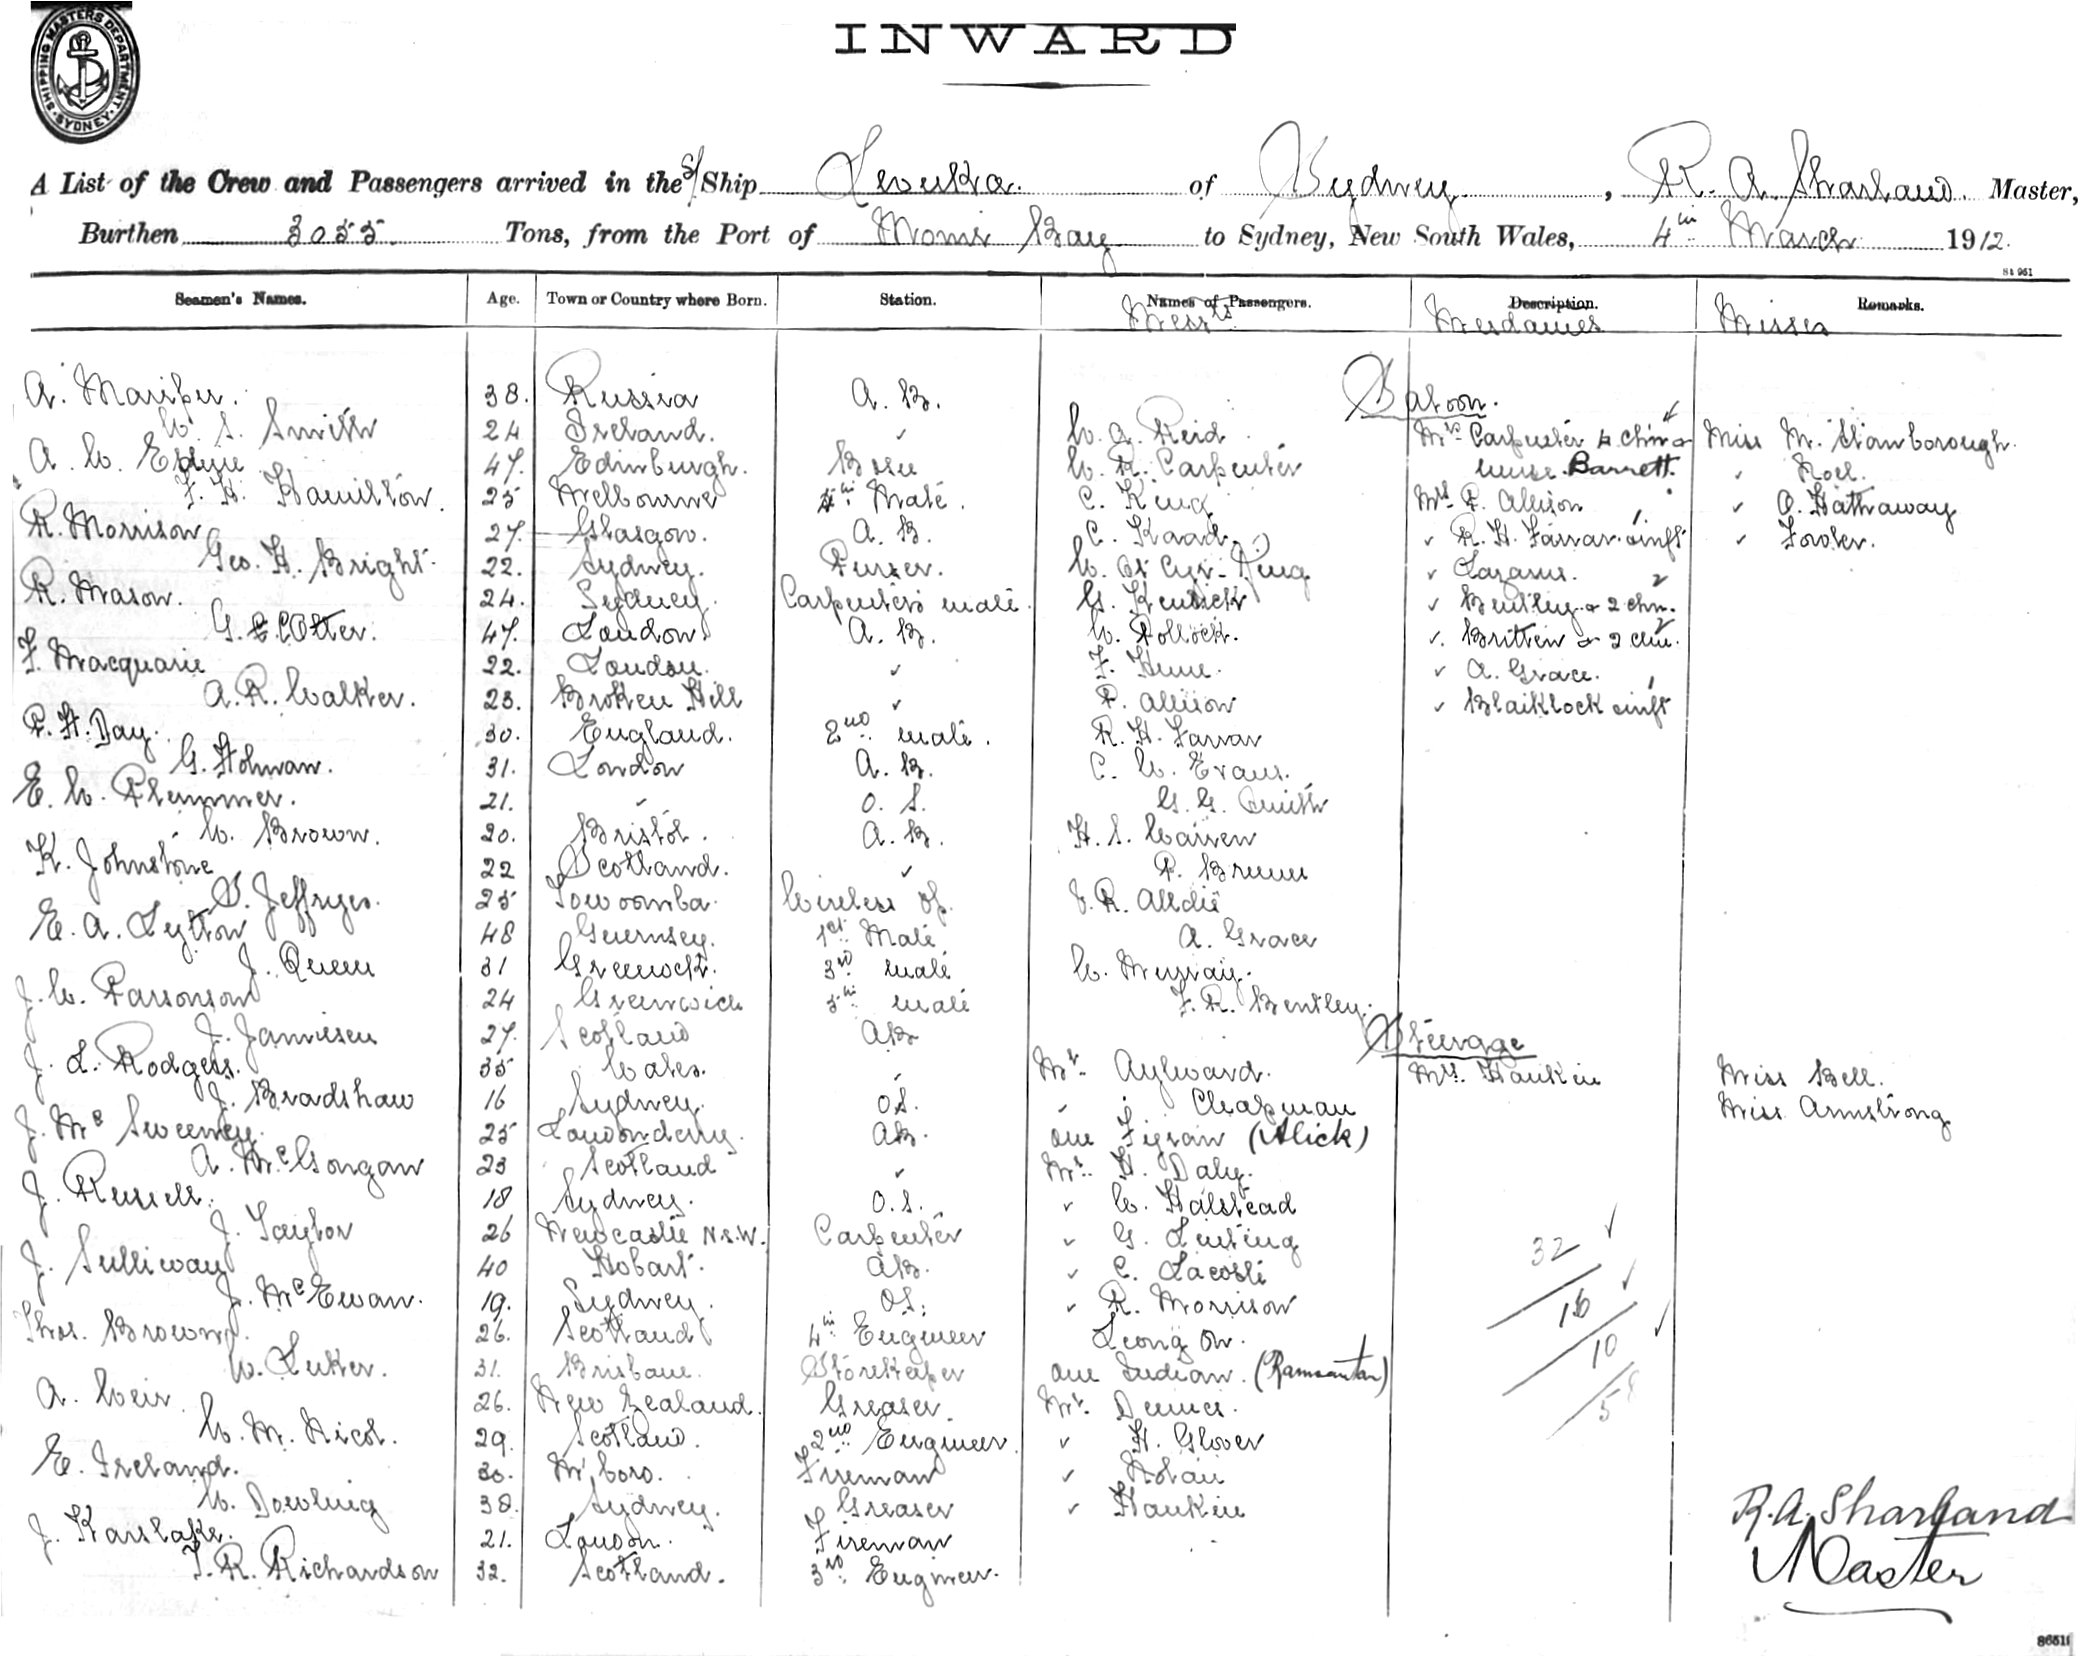 SHIPPING MASTERS DEPARTMENT. SYDNEY.
INWARD
A List of the Crew and Passengers arrived in the S/Ship Levuka of Sydney, R. A. Sharland Master,
Burthen 3055 Tons, from the Port of to Sydney, New South Wales, 4th March 1912.
Seamen's Names. Age. Town or Country where Born. Station. Names of Passengers. Description. Remarks.
Messrs Mesdames Misses
Saloon.
A. 38. Russia A. B.
W. S. Smith 24 Ireland. " W. A. Reid Mrs Carpenter & Miss M. Stanborough.
A. W. 47. Edinburgh. W. R. Carpenter nurse. Barrett. " Noel.
F. H. Hamilton. 25 Melbourne 4th Mate. C. King Mrs. P. Allison " O. Hathaway
R. Morrison 27. Glasgow. A. B. C. Kaad. " R. H. Farrar & inft " Fowler.
Geo. H. Bright. 22. Sydney. Purser. W. St Cyr. King " Lazarus.
R. Mason. 24. Sydney. Carpenter's mate. G. " Bentley & 2 chn.
G. Cotter. 47. London A. B. W. Pollock. " Britten & 2 chn.
F. Macquarie 22. London. " F. Hume. " A. Grace.
A. R. Walker. 23. Broken Hill " P. Allison " Blaiklock & inft
P. H. Day. 30. England. 2nd mate. R. H. Farrar
G. Holman. 31. London A. B. C. W. Evans.
E. W. Plemmer. 21. " O. S. G. G. Smith
W. Brown. 20. Bristol. A. B. H. S. Warren
K. Johnstone 22 Scotland. " P. Brunn
S. Jeffryes. 25 Towoomba. Wireless Op. J. R. Alldis
E. A. Lytton 48 Guernsey. 1st Mate A. Grace
J. Queen 31 Greenock. 3rd mate W. Murray.
J. W. Parsonson 24 Greenwich 5th mate F. R. Bentley.
Steerage
J. Jamiesen 27. Scotland AB
J. L. Rodgers. 35 Wales. " Mr. Aylward. Mrs. Hankin Miss Bell.
J. Bradshaw 16 Sydney. O.S. " Chapman Miss Armstrong
J. McSweeney. 25 Londonderry. AB. one Fijian (Alick)
A. McGongan 23 Scotland " Mr. H. Daly.
J. Russell. 18 Sydney. O.S. " W. Halstead
J. Taylor 26 Newcastle N.S.W. Carpenter " G. Linting
J. Sullivan 40 Hobart. AB. " C. Lacoste
J. McEwan. 19. Sydney. OS. " R. Morrison
Thos. Brown. 26. Scotland 4th Engineer Leong On.
W. Luker. 31. Brisbane. Storekeeper one Indian. (Ramsantan)
A. Weir 26. New Zealand. Greaser. Mr. Dennis.
W. M. Nicol. 29. Scotland. 2nd Engineer. " H. Glover
E. Ireland. 30. M'boro. Fireman " Nolan
W. Dowling 38. Sydney. Greaser " Hankin
J. Karslake. 21. London. Fireman
T. R. Richardson 32. Scotland. 3rd Engineer.
32
16
10
58
R. A. Sharland
Master